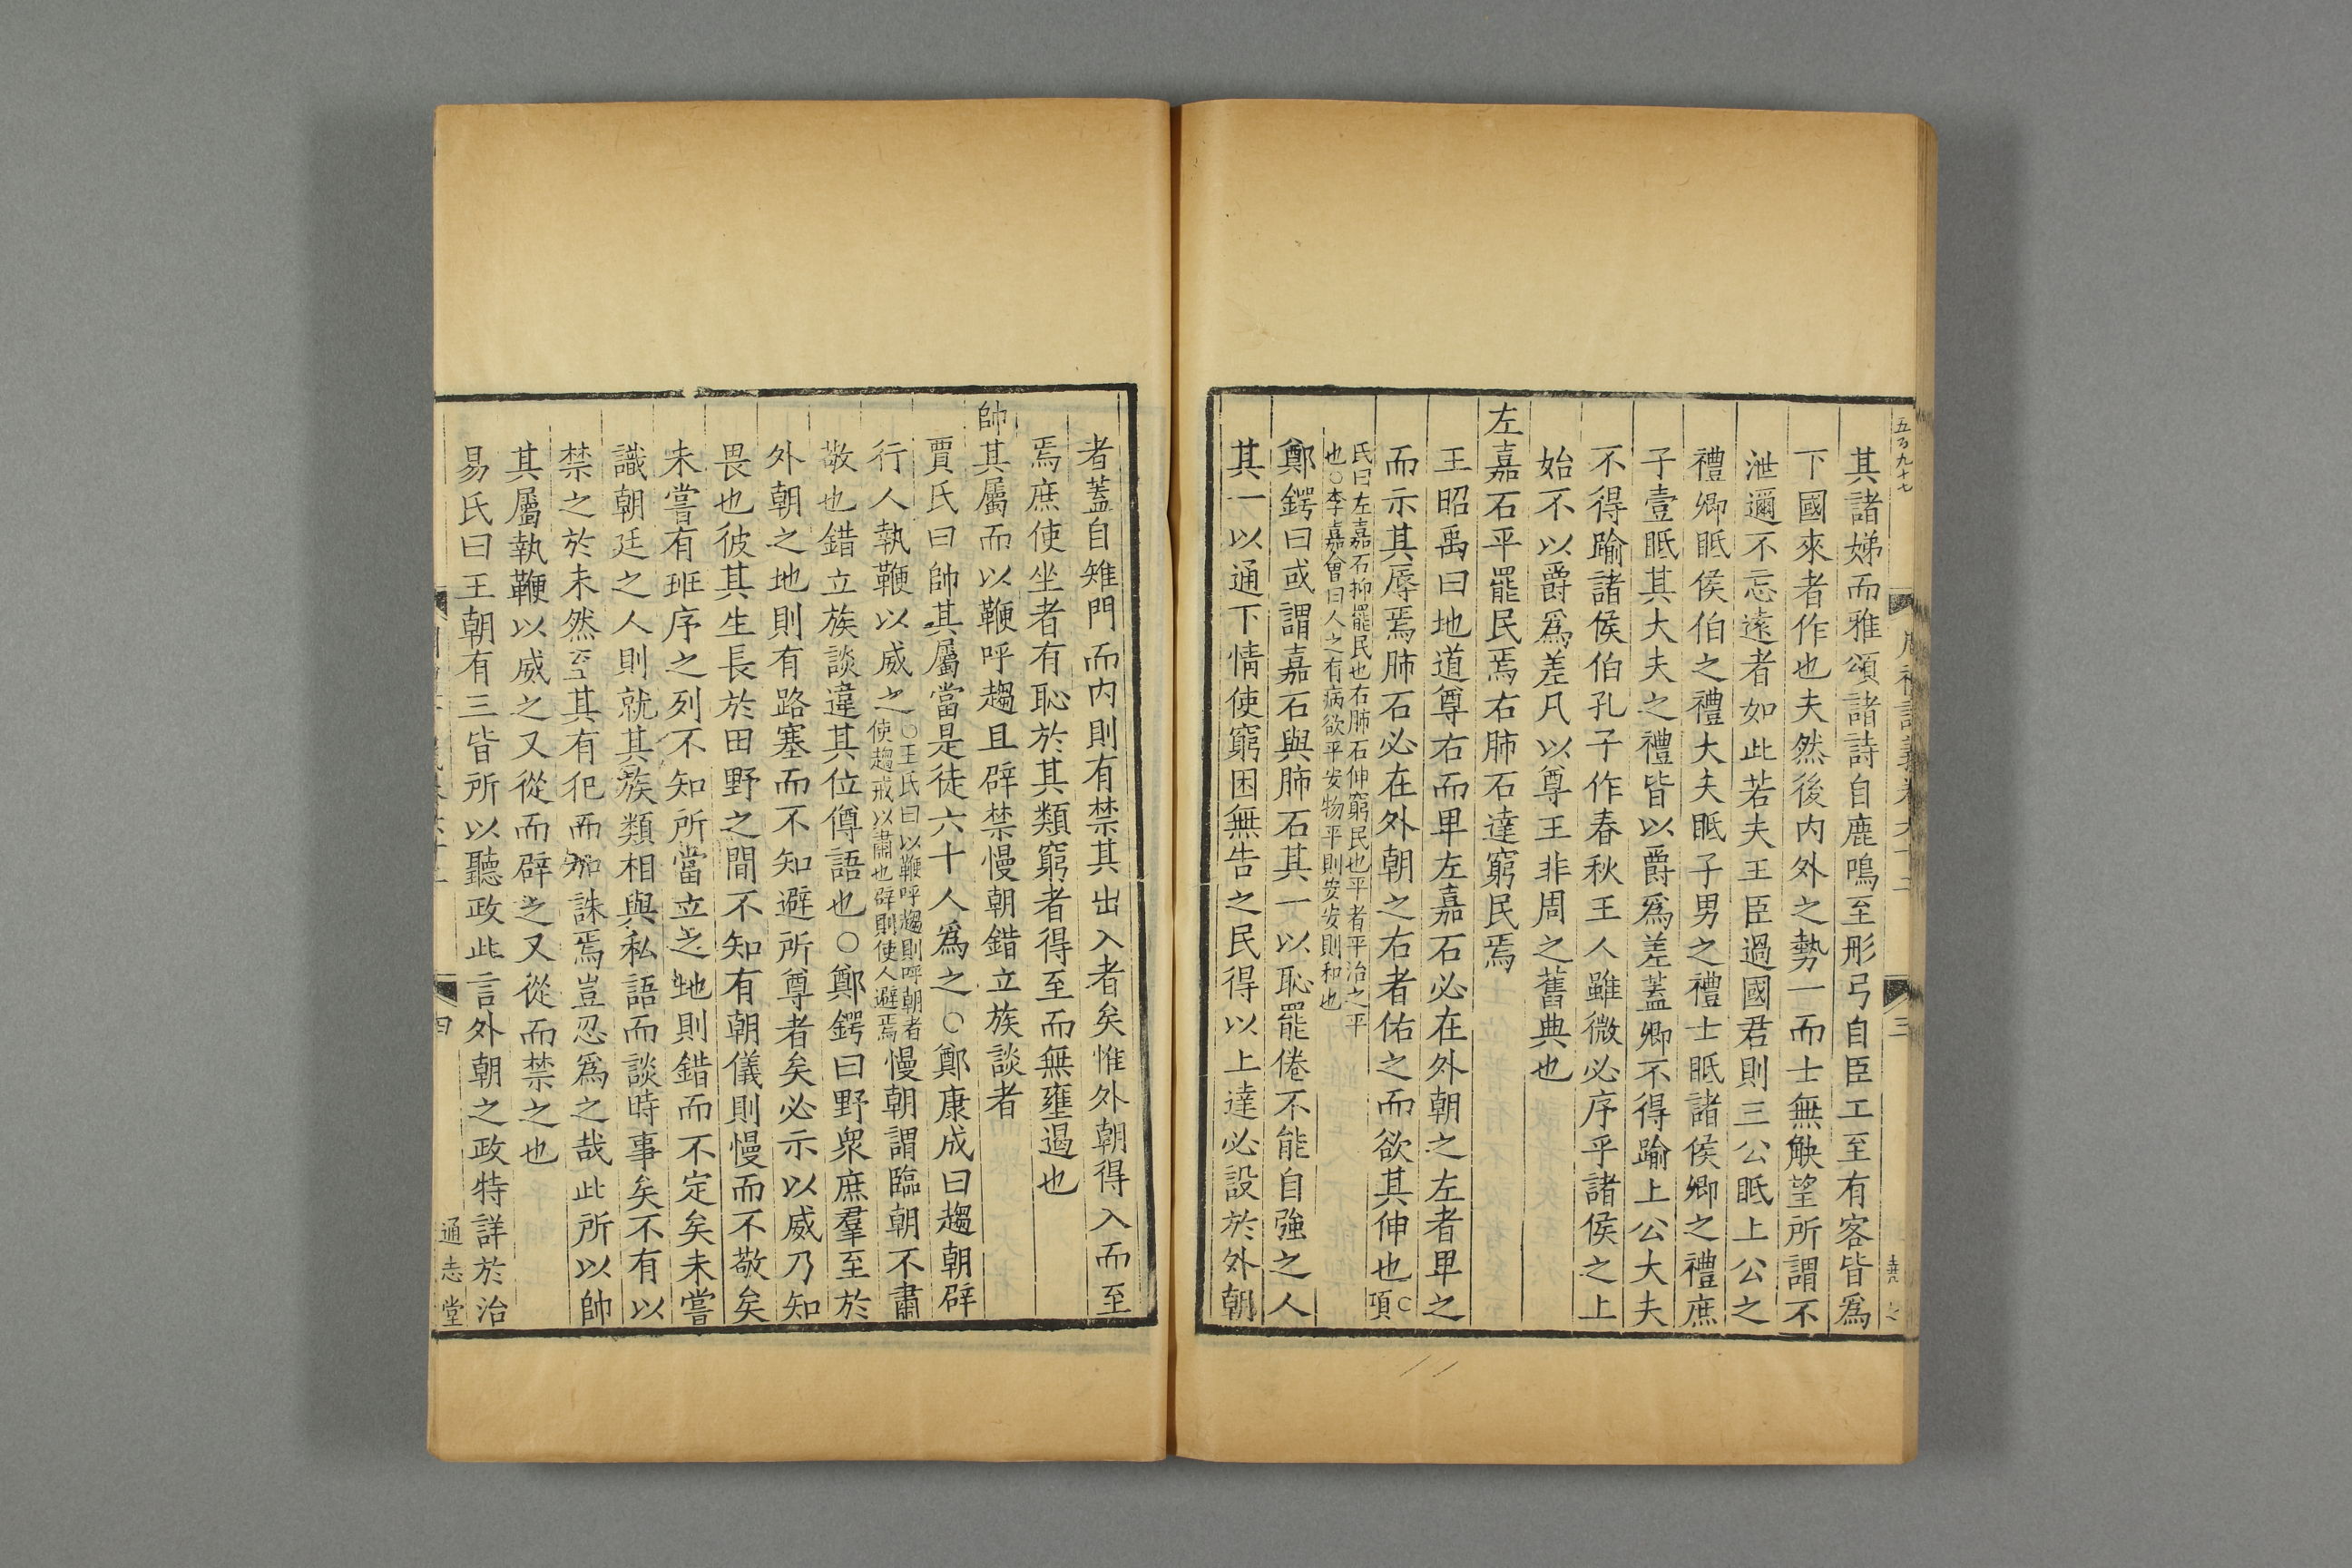 五百九十七
三
其諸娣而雅頌諸詩自鹿鳴至彤弓自臣工至有客皆爲
下國來者作也夫然後内外之勢一而士無觖望所謂不
泄邇不忘遠者如此若夫王臣過國君則三公眂上公之
禮卿眂侯伯之禮大夫眂子男之禮士眂諸侯卿之禮庶
子壹眂其大夫之禮皆以爵爲差蓋卿不得踰上公大夫
不得踰諸侯伯孔子作春秋王人雖微必序乎諸侯之上
始不以爵爲差凡以尊王非周之舊典也
左嘉石平罷民焉右肺石達窮民焉
王昭禹曰地道尊右而卑左嘉石必在外朝之左者卑之
而示其辱焉肺石必在外朝之右者佑之而欲其伸也○項
氏曰左嘉石抑罷民也右肺石伸窮民也平者平治之平
也○李嘉會曰人之有病欲平安物平則安安則和也
鄭鍔曰或謂嘉石與肺石其一以恥罷倦不能自強之人
其一以通下情使窮困無告之民得以上達必設於外朝
者蓋自雉門而内則有禁其出入者矣惟外朝得入而至
焉庶使坐者有恥於其類窮者得至而無壅遏也
帥其屬而以鞭呼趨且辟禁慢朝錯立族談者
賈氏曰帥其屬當是徒六十人爲之○鄭康成曰趨朝辟
行人執鞭以威之
○王氏曰以鞭呼趨則呼朝者
使趨戒以肅也辟則使人避焉
慢朝謂臨朝不肅
敬也錯立族談違其位僔語也○鄭鍔曰野衆庶羣至於
外朝之地則有路塞而不知避所尊者矣必示以威乃知
畏也彼其生長於田野之間不知有朝儀則慢而不敬矣
未嘗有班序之列不知所當立之地則錯而不定矣未嘗
識朝廷之人則就其族類相與私語而談時事矣不有以
禁之於未然至其有犯而加誅焉豈忍爲之哉此所以帥
其屬執鞭以威之又從而辟之又從而禁之也
易氏曰王朝有三皆所以聽政此言外朝之政特詳於治
四
通志堂